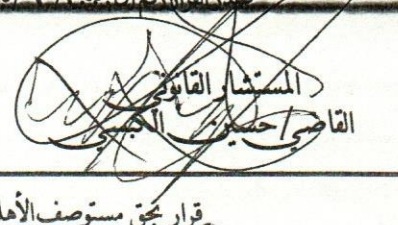 المستشار القانوني
القاضي / حسين الكبسي
قرار بحق مستوصف الأها